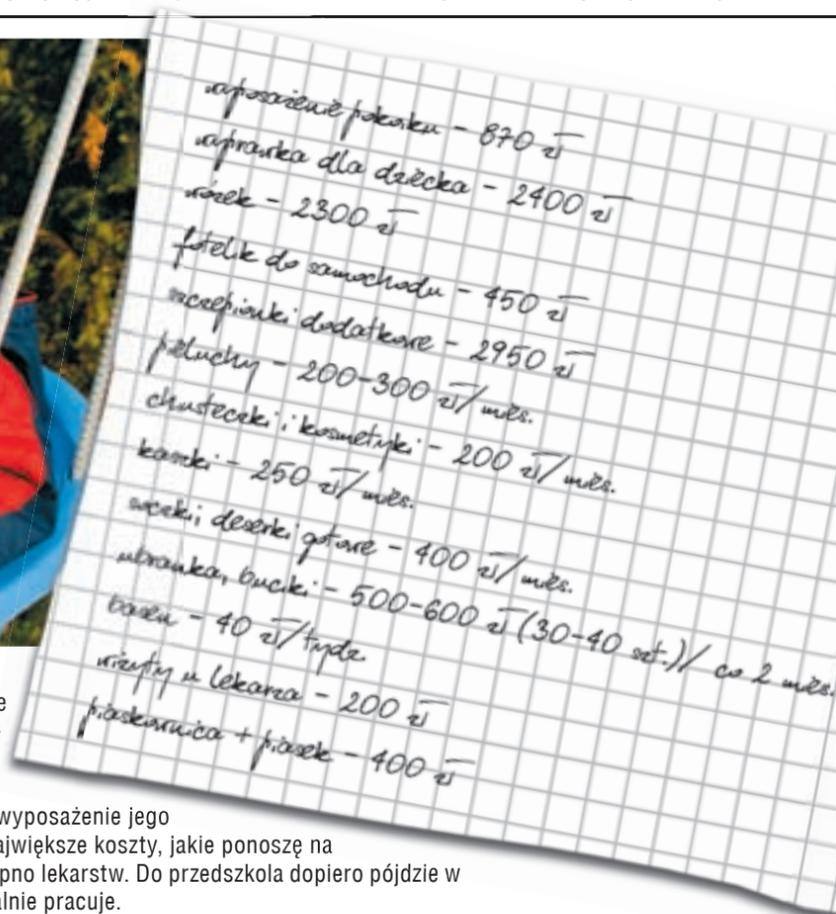 wyposażenie pokoiku - 870 zł
wyprawka dla dziecka - 2400 zł
wózek - 2300 zł
fotelik do samochodu - 450 zł
szczepionki dodatkowe - 2950 zł
pieluchy - 200-300 zł/mies.
chusteczki i kosmetyki - 200 zł/mies.
kaszki - 250 zł/mies.
soczki, deserki gotowe - 400 zł/mies.
ubranka, buciki - 500-600 zł (30-40 szt.)/ co 2 mies.
basen - 40 zł/tydz.
wizyty u lekarza - 200 zł
piaskownica + piasek - 400 zł
wyposażenie jego
koszty, jakie ponoszę na
lekarstw. Do przedszkola dopiero pójdzie w
pracuje.